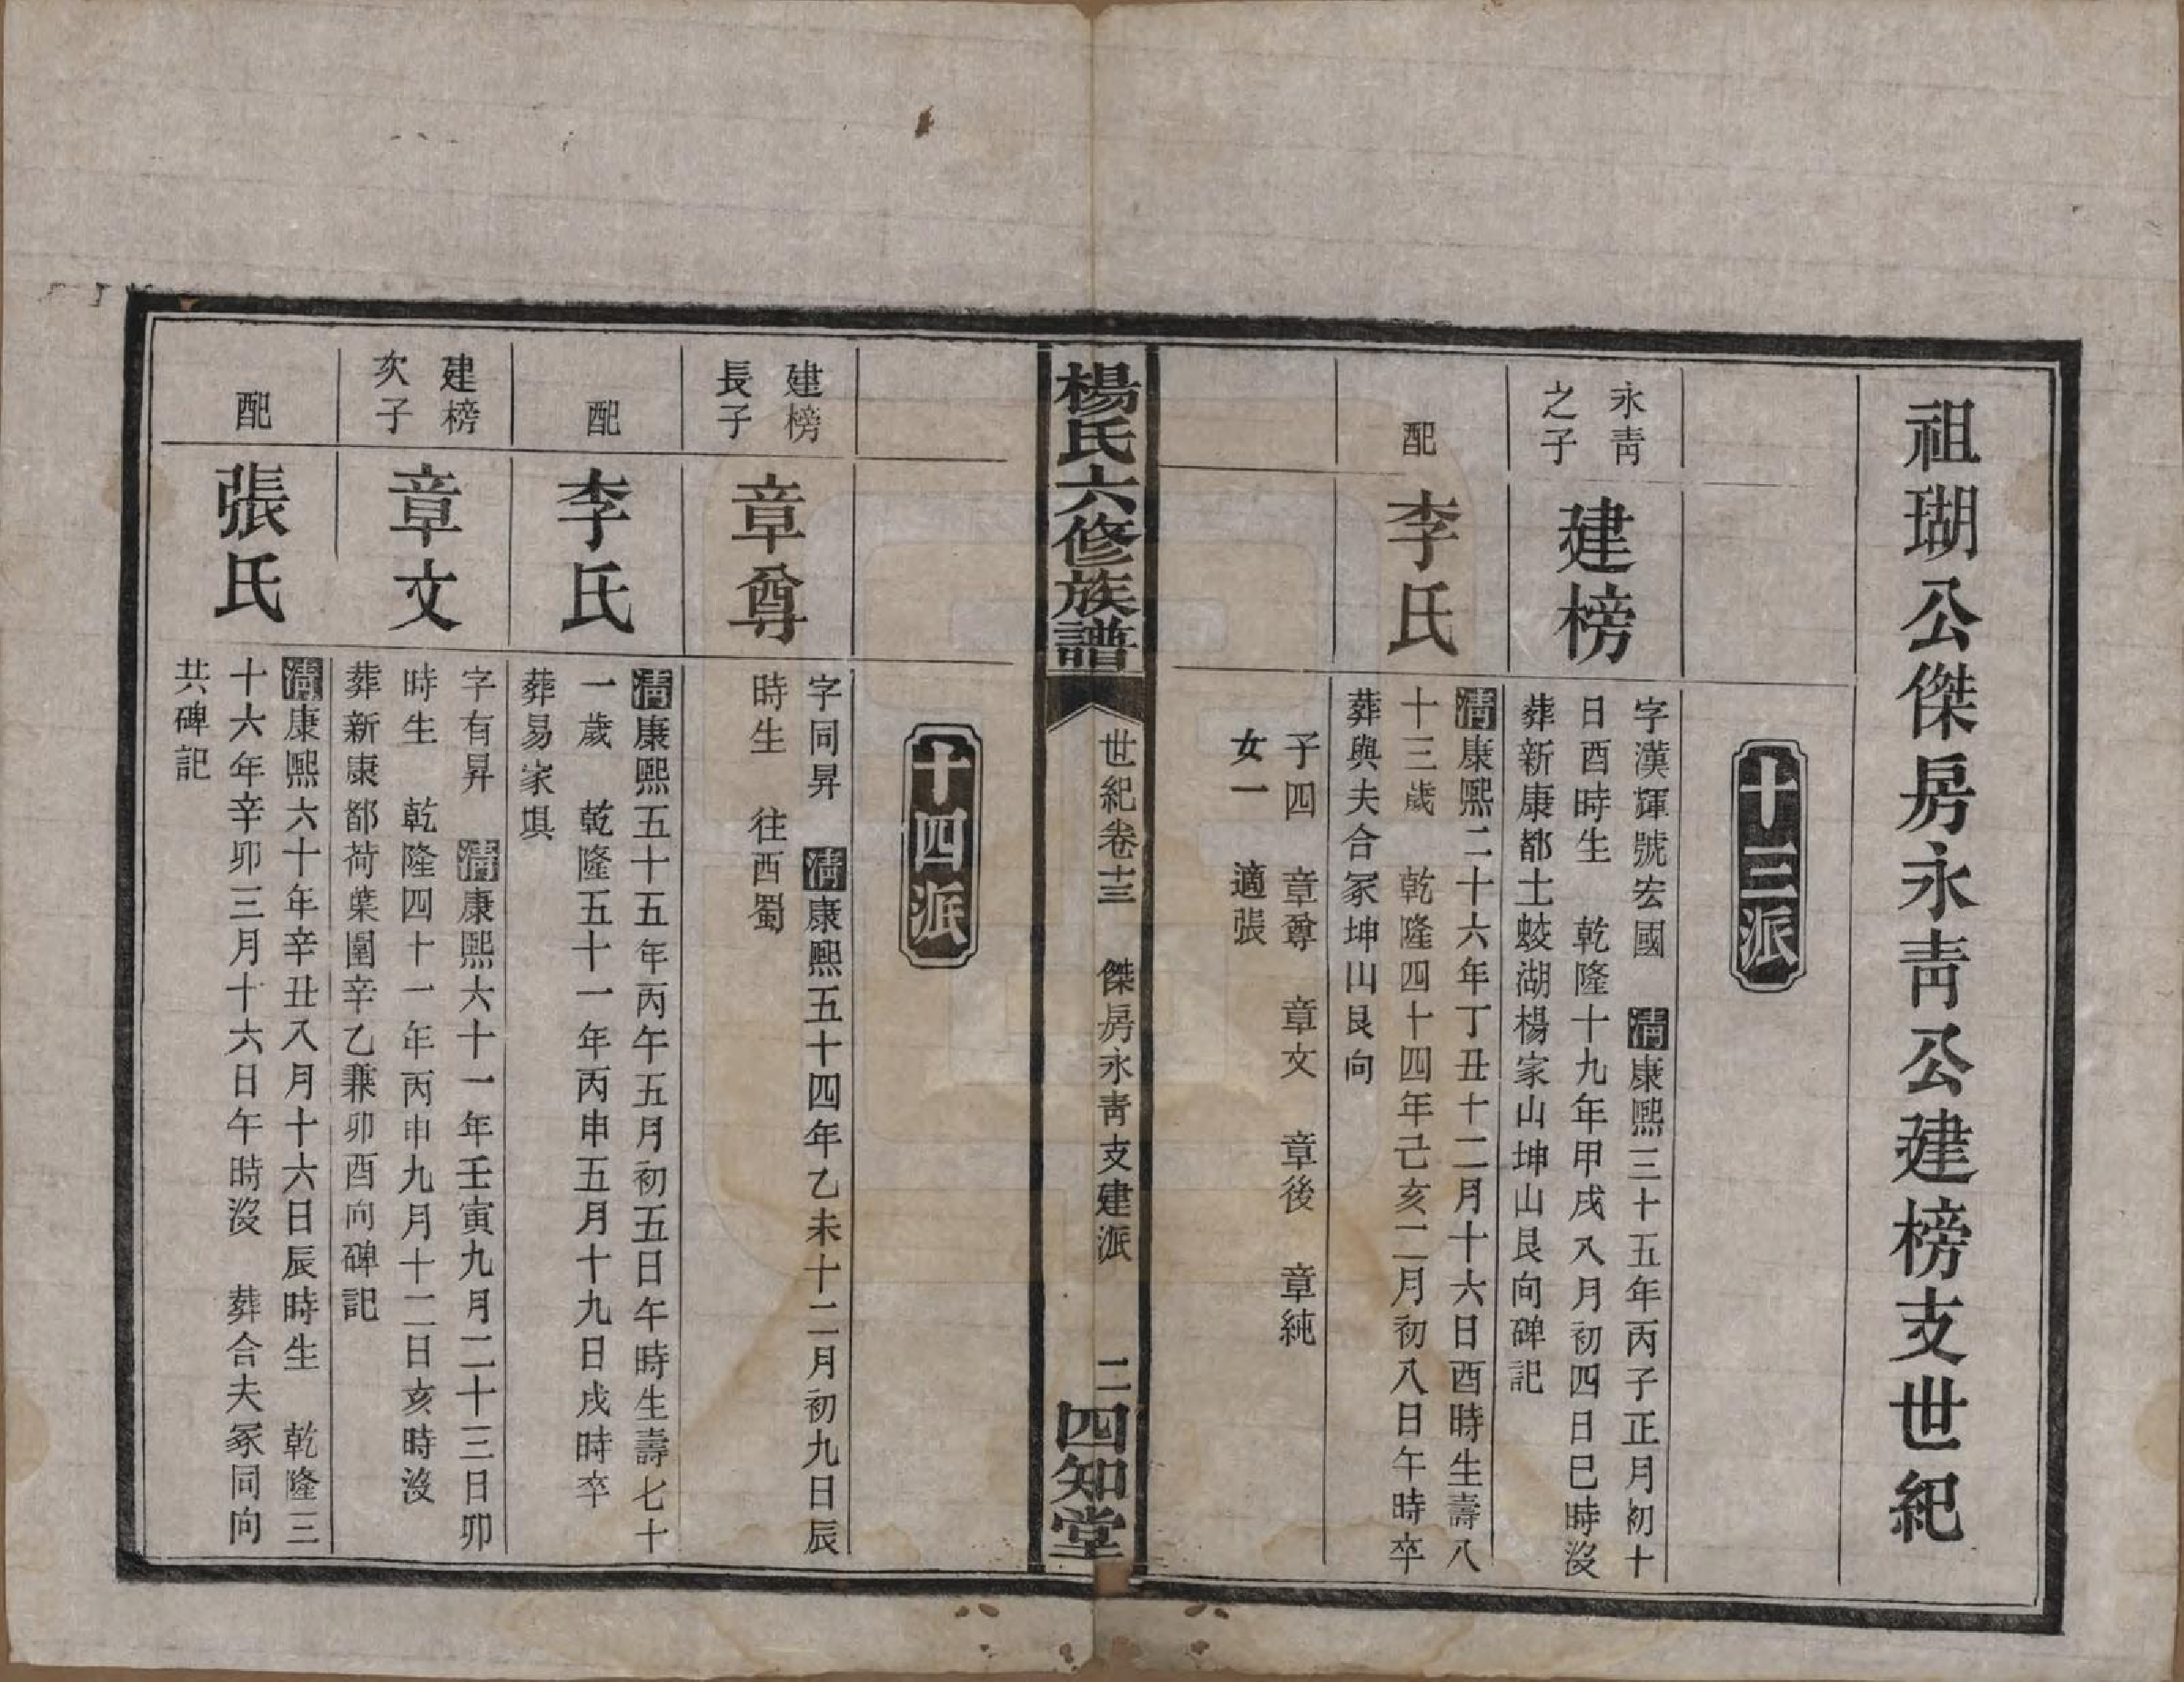 祖瑚公傑房永青公建榜支世紀
十三派
永青
之子
建榜
字漢輝號宏國 清康熙三十五年丙子正月初十
日酉時生 乾隆十九年甲戌八月初四日巳時沒
葬新康都土蛟湖楊家山坤山艮向碑記
配
李氏
清康熙二十六年丁丑十二月十六日酉時生壽八
十三歲 乾隆四十四年己亥二月初八日午時卒
葬與夫合冢坤山艮向
子四 章尊 章文 章後 章純
女一 適張
楊氏六修族譜
世紀卷十三 傑房永青支建派 二
四知堂
十四派
建榜
長子
章尊
字同昇 清康熙五十四年乙未十二月初九日辰
時生 往西蜀
配
李氏
清康熙五十五年丙午五月初五日午時生壽七十
一歲 乾隆五十一年丙申五月十九日戌時卒
葬易家堪
建榜
次子
章文
字有昇 清康熙六十一年壬寅九月二十三日卯
時生 乾隆四十一年丙申九月十二日亥時沒
葬新康都荷葉圍辛乙兼卯酉向碑記
配
張氏
清康熙六十年辛丑八月十六日辰時生 乾隆三
十六年辛卯三月十六日午時沒 葬合夫冢同向
共碑記